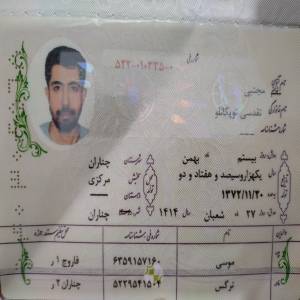 شماره ملی ۵۲۲-۰۱۰۲۳۵-۰۰
نام مجتبی
نام خانوادگی تقدسی توپکانلو
شماره شناسنامه
روز بیستم ماه بهمن
سال یکهزاروسیصد و هفتاد و دو
۱۳۷۲/۱۱/۲۰
روز ۲۷ ماه شعبان سال ۱۴۱۴
شهرستان چناران
بخش مرکزی
چناران
شماره ملی / شماره شناسنامه
موسی ۶۳۵۹۱۵۷۱۶۰ فاروج ۱ ر
نرگس ۵۲۲۹۵۴۱۵۰۴ چناران ۲ ر